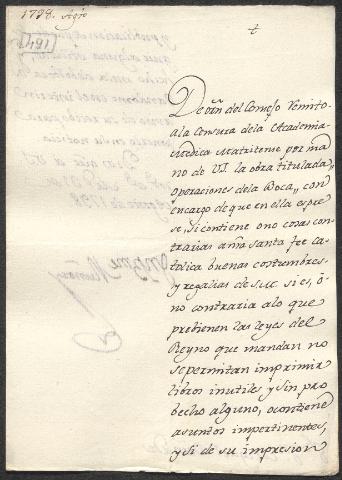 1798. Agto
491
t
De orn del Consejo Remito
ala Censura dela Academia
Medica Matritense por ma
no de VS la obra titulada,,
operaciones dela Boca,, con
encargo de que en ella expre
se, si contiene ono cosas con
trarias anra santa fee ca
tolica buenas costumbres,
y regalias de S.M. si es, ò
no contraria alo que
previenen las leyes del
Reyno que mandan no
se permitan imprimir
libros inutiles y sin pro
becho alguno, o contiene
asuntos impertinentes,
y si de su impresion